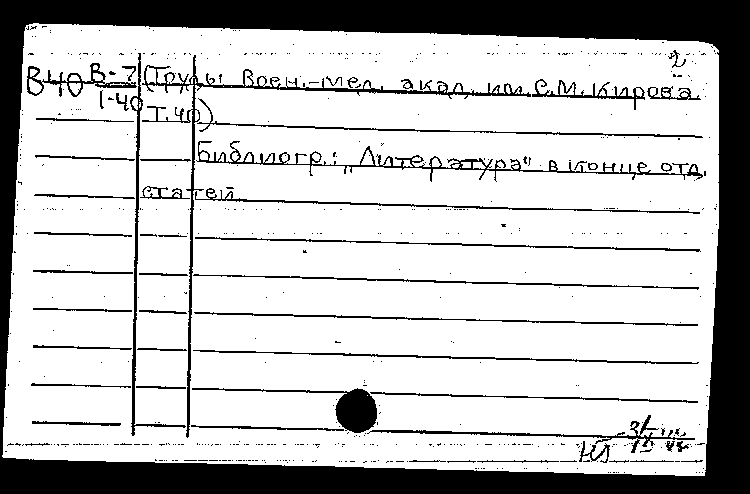 2
В40 В-7 (Труды Воен.-мед. акад. им. С.М. Кирова.
1-40 Т.40).
Библиогр.: „Литература" в конце отд.
статей